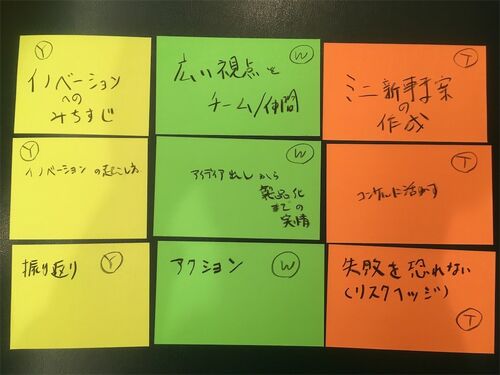 Y
イノベーション
への
みちすじ
W
広い視点と
チーム/仲間
T
ミニ新事業案
の
作成
Y
イノベーションの起こし方
W
アイディア出しから
製品化
までの
実情
T
コンサルに活かす
振り返り Y
アクション W
失敗を恐れない
(リスクヘッジ)
T